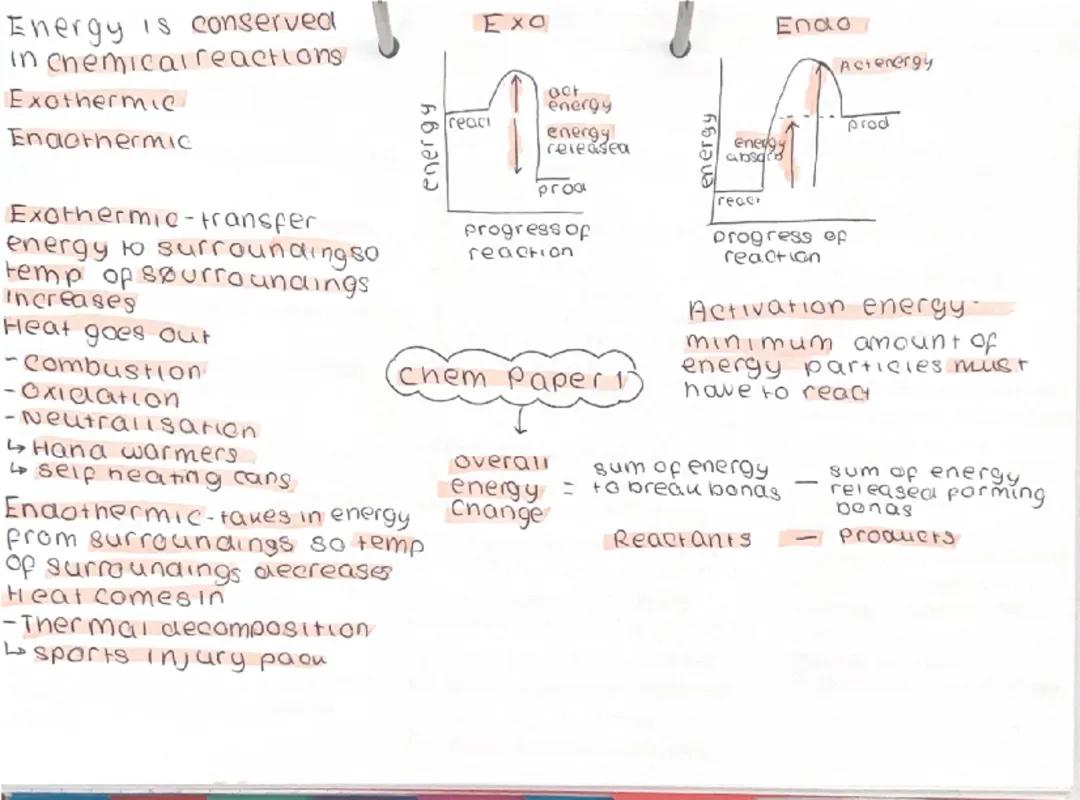 Energy is conserved
in chemical reactions
Exothermic
Endothermic
Exothermic - transfer
energy to surrounding so
temp of surroundings
increases
Heat goes out
- combustion
- oxidation
- Neutralisation
↳ Hand warmers
↳ self heating cans
Endothermic - takes in energy
from surroundings so temp
of surroundings decreases
Heat comes in
- Thermal decomposition
↳ sports injury pack
Exo
energy
react
act
energy
energy
released
prod
progress of
reaction
Endo
energy
Act energy
energy
absorb
prod
react
progress of
reaction
Activation energy -
minimum amount of
energy particles must
have to react
Chem Paper 1
overall
energy
change
=
sum of energy
to break bonds
—
sum of energy
released forming
bonds
Reactants — products